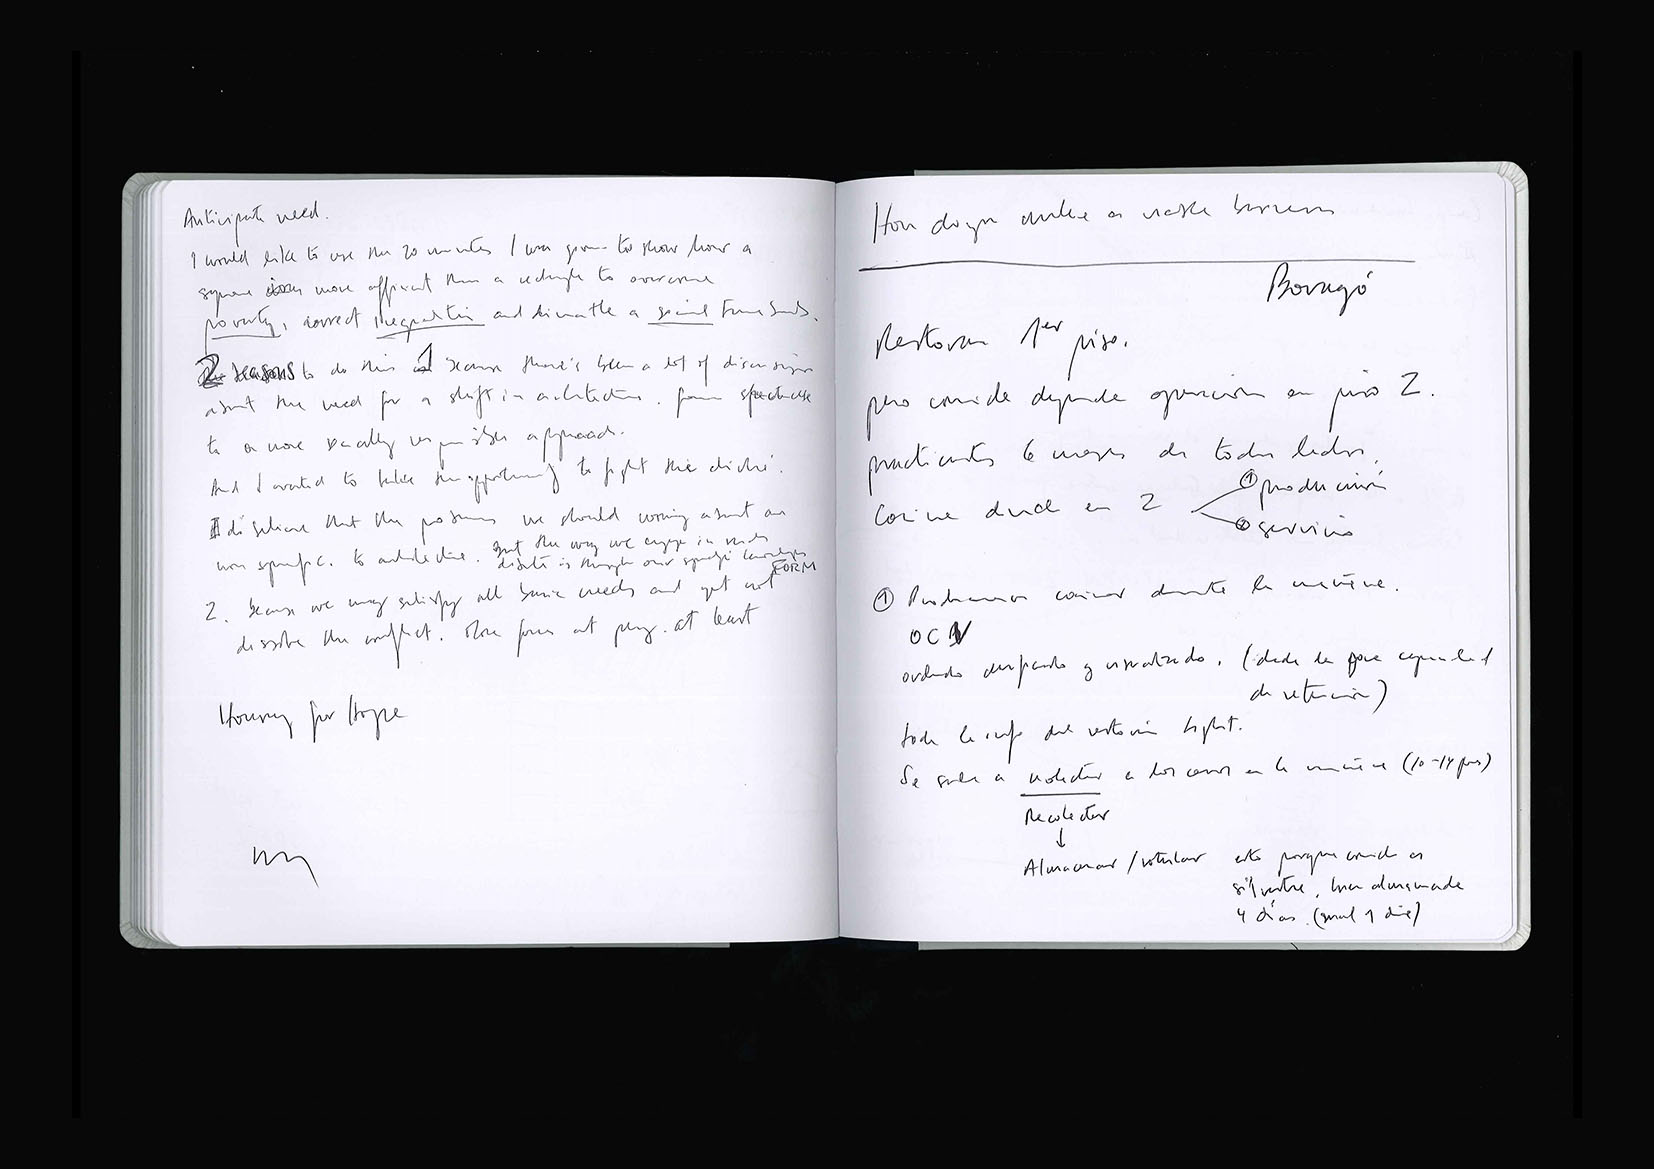 Anticipate need.
I would like to use the 20 minutes I was given to show how a
square is more efficient than a rectangle to overcome
poverty, correct inequalities and dismantle a social time bomb.
2 reasons to do this 1 because there's been a lot of discussion
about the need for a shift in architecture, from spectacle
to a more socially responsible approach.
And I wanted to take the opportunity to fight this cliché.
I do believe that the problems we should worry about are
non specific to architecture. But the way we engage in such
debate is through our specific knowledge
FORM
2. Because we may satisfy all basic needs and yet not
dissolve the conflict. More forces at play. at least
Housing for Hope
How do you make a viable business
Boragó
Restoran 1er piso.
pero comida depende operación en piso 2.
practicantes de todos lados.
Cocina dividida en 2
① producción
② servicio
① cocinar durante la mañana.
OCN
ordenado limpiando y visualizado. (desde la que capacidad
de retención)
toda la del restorán light.
Se sale a recolectar a los cerros en la mañana (10-14 pers)
Recolectar
↓
Almacenar / rotular esto porque comida es
silvestre, bien almacenada
4 días. (normal 1 día)